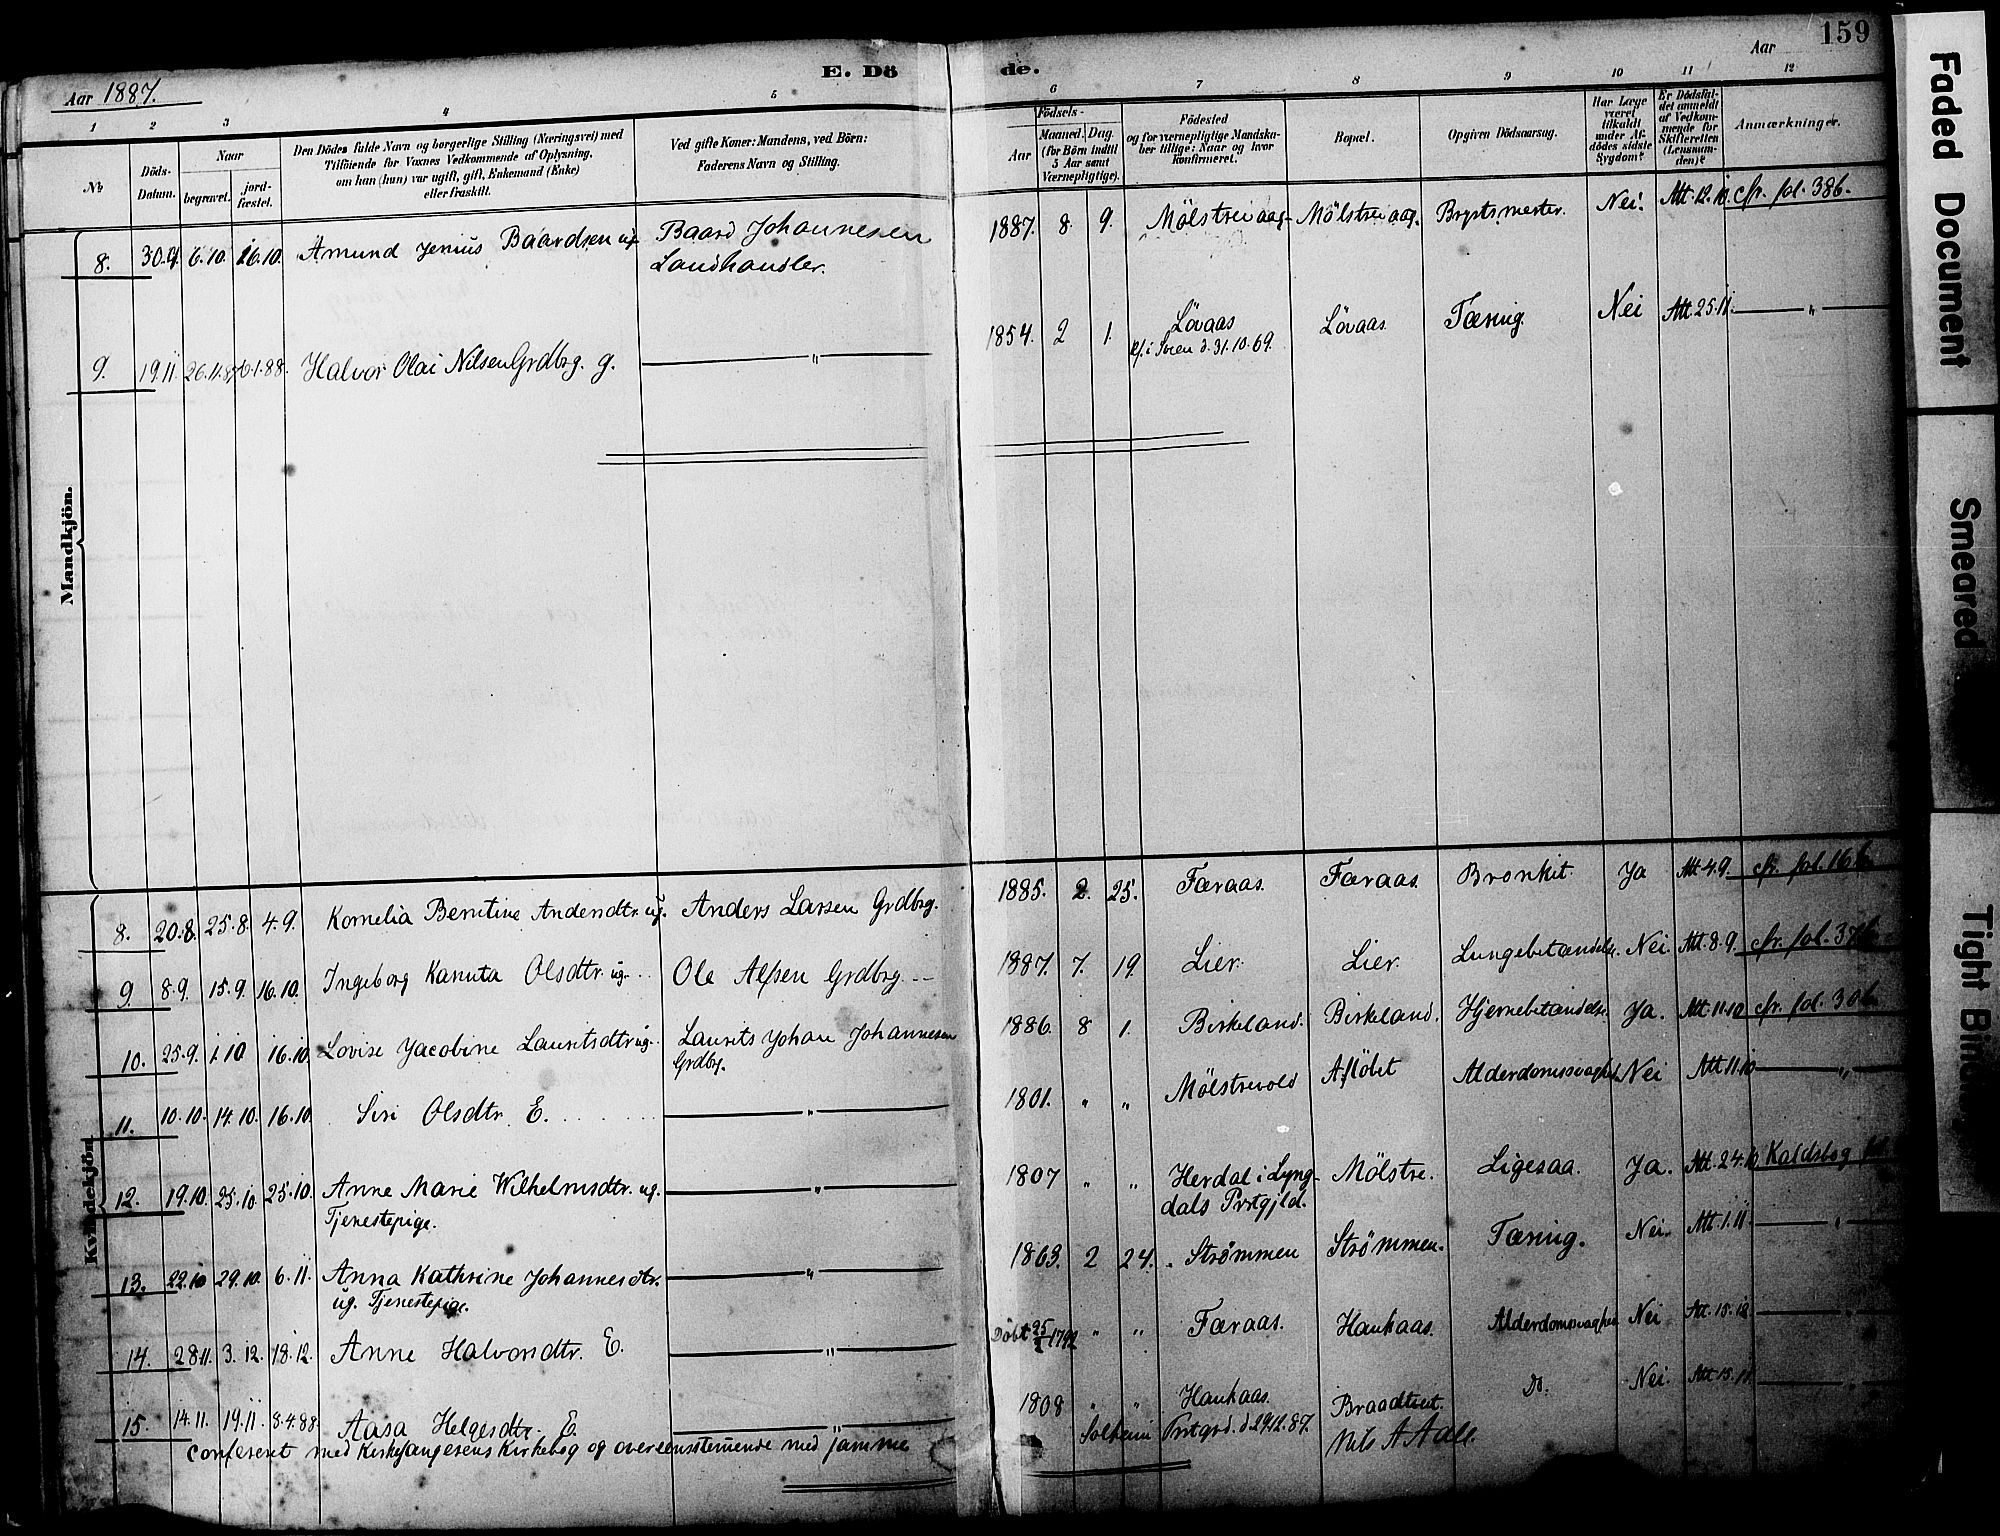 159
E. Döde.
Aar 1887.
Aar
1 2 3 4 5 6 7 8 9 10 11 12
No
Döds-Datum.
Naar
begravet.
jord-fæstet.
Den Dödes fulde Navn og borgerlige Stilling (Næringsvei) med
Tilföiende for Voxnes Vedkommende af Oplysning,
om han (hun) var ugift, gift, Enkemand (Enke)
eller fraskilt.
Ved gifte Koner: Mandens, ved Börn:
Faderens Navn og Stilling.
Födsels-
Aar
Maaned. Dag.
(for Börn indtil
5 Aar samt
Værnepligtige).
Födested
og for værnepligtige Mandska-
ber tillige: Naar og hvor
konfirmeret.
Bopæl.
Opgiven Dödsaarsag.
Har Læge
været
tilkaldt
under Af-
dödes sidste
Sygdom?
Er Dödsfal-
det anmeldt
af Vedkom-
mende for
Skifteretten
(Lensman-
den)?
Anmærkninger.
Mandkjön.
8. 30.9. 6.10. 16.10. Amund Jenius Baardsen ug. Baard Johannesen 1887. 8. 9. Mölstrevaag Mölstrevaag. Brystsmerter. Nei. Att. 12.10. cfr. fol. 38b.
Landhandler.
9. 19.11. 26.11.87 6.1.88. Halvor Olai Nilsen Grdbrg. g. " 1854. 2 1. Lövaas Lövaas. Tæring. Nei Att 25.11. "
kf. i Sveen d. 31.10.69.
Kvindekjön.
8. 20.8. 25.8. 4.9. Kornelia Berntine Andersdtr. ug. Anders Larsen Grdbrg. 1885. 2. 25. Færaas. Færaas. Bronkit. Ja Att 4.9. cfr. fol. 16b
9 8.9. 15.9. 16.10. Ingeborg Kanuta Olsdtr. ug. Ole Alfsen Grdbrg. 1887. 7. 19. Lier. Lier. Lungebetændelse. Nei. Att. 8.9. cfr. fol. 37b
10. 25.9. 1.10 16.10. Lovise Jacobine Lauritsdtr ug. Laurits Johan Johannesen 1886. 8 1. Birkeland. Birkeland. Hjernebetændelse. Ja. Att. 11.10 cfr. fol. 30b
Grdbrg.
11. 10.10. 14.10. 16.10. Siri Olsdtr. E. " 1801. " " Mölstrevold Aflöbet Alderdomssvaghed Nei Att 11.10 "
12. 19.10. 25.10. 25.10. Anne Marie Wilhelmsdtr. ug. " 1807 " " Herdal i Lyng- Mölstre. Ligesaa. Ja. Att. 24.10
Tjenestepige. dals Prstgjld.
13. 22.10 29.10. 6.11. Anna Kathrine Johannesdtr. " 1863. 2 24. Strømmen Strømmen. Tæring. Nei. Att. 1.11. "
ug. Tjenestepige.
14. 28.11. 3.12. 18.12. Anne Halvorsdtr. E. " Döbt 1792 " " Færaas. Haukaas. Alderdomssvaghed Nei Att. 15.12.
15. 14.11. 19.11 3.4.88. Aasa Helgesdtr. E. " 1808 " " Haukaas. Braadtvet. Do. Nei. Att 15.11
Confereret med Kirkesangerens Kirkebog og overensstemmende med samme
Solheim Prstgrd. d. 29.12.87. Nils A Aall.
Faded Document
Smeared